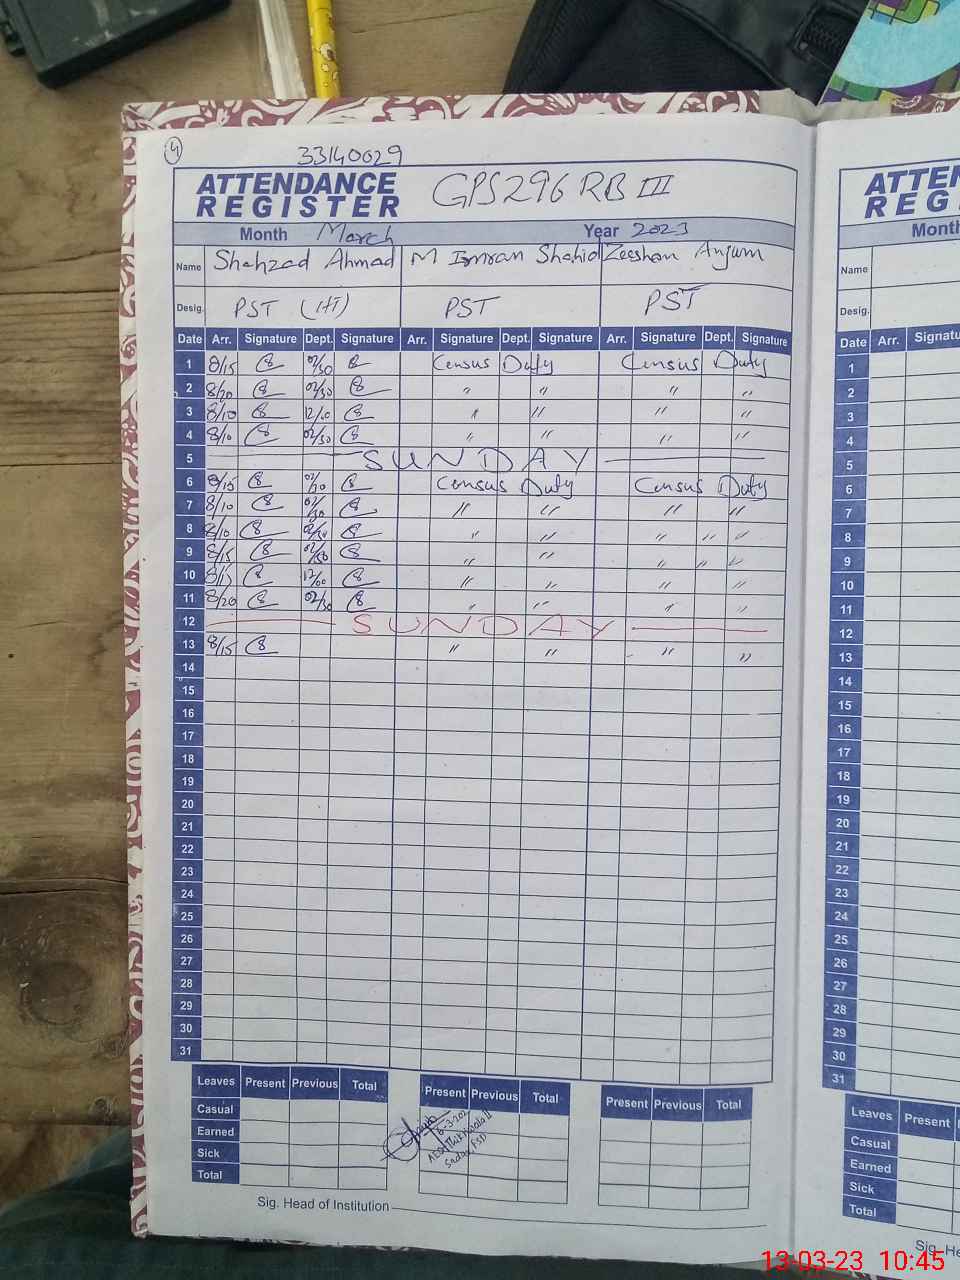 4
33140029
ATTENDANCE REGISTER GPS 296 RB III
Month March Year 2023
Name Shahzad Ahmad M Imran Shahid Zeeshan Anjum
Desig. PST (HT) PST PST
Date Arr. Signature Dept. Signature Arr. Signature Dept. Signature Arr. Signature Dept. Signature
1 8/15 02/30 Census Duty Census Duty
2 8/20 02/30 " " " "
3 8/10 12/00 " " " "
4 8/10 02/30 " " " "
5 SUNDAY
6 8/15 02/30 Census Duty Census Duty
7 8/10 02/30 " " " "
8 8/10 02/30 " " " " "
9 8/15 02/30 " " " " "
10 8/15 12/00 " " " "
11 8/20 02/30 " " " "
12 SUNDAY
13 8/15 " " " "
14
15
16
17
18
19
20
21
22
23
24
25
26
27
28
29
30
31
Leaves Present Previous Total Present Previous Total Present Previous Total
Casual
Earned
Sick
Total
Sig. Head of Institution
ATTEN
REG
Month
Name
Desig.
Date Arr. Signatu
1
2
3
4
5
6
7
8
9
10
11
12
13
14
15
16
17
18
19
20
21
22
23
24
25
26
27
28
29
30
31
Leaves Present
Casual
Earned
Sick
Total
Sig. He
13-03-23 10:45